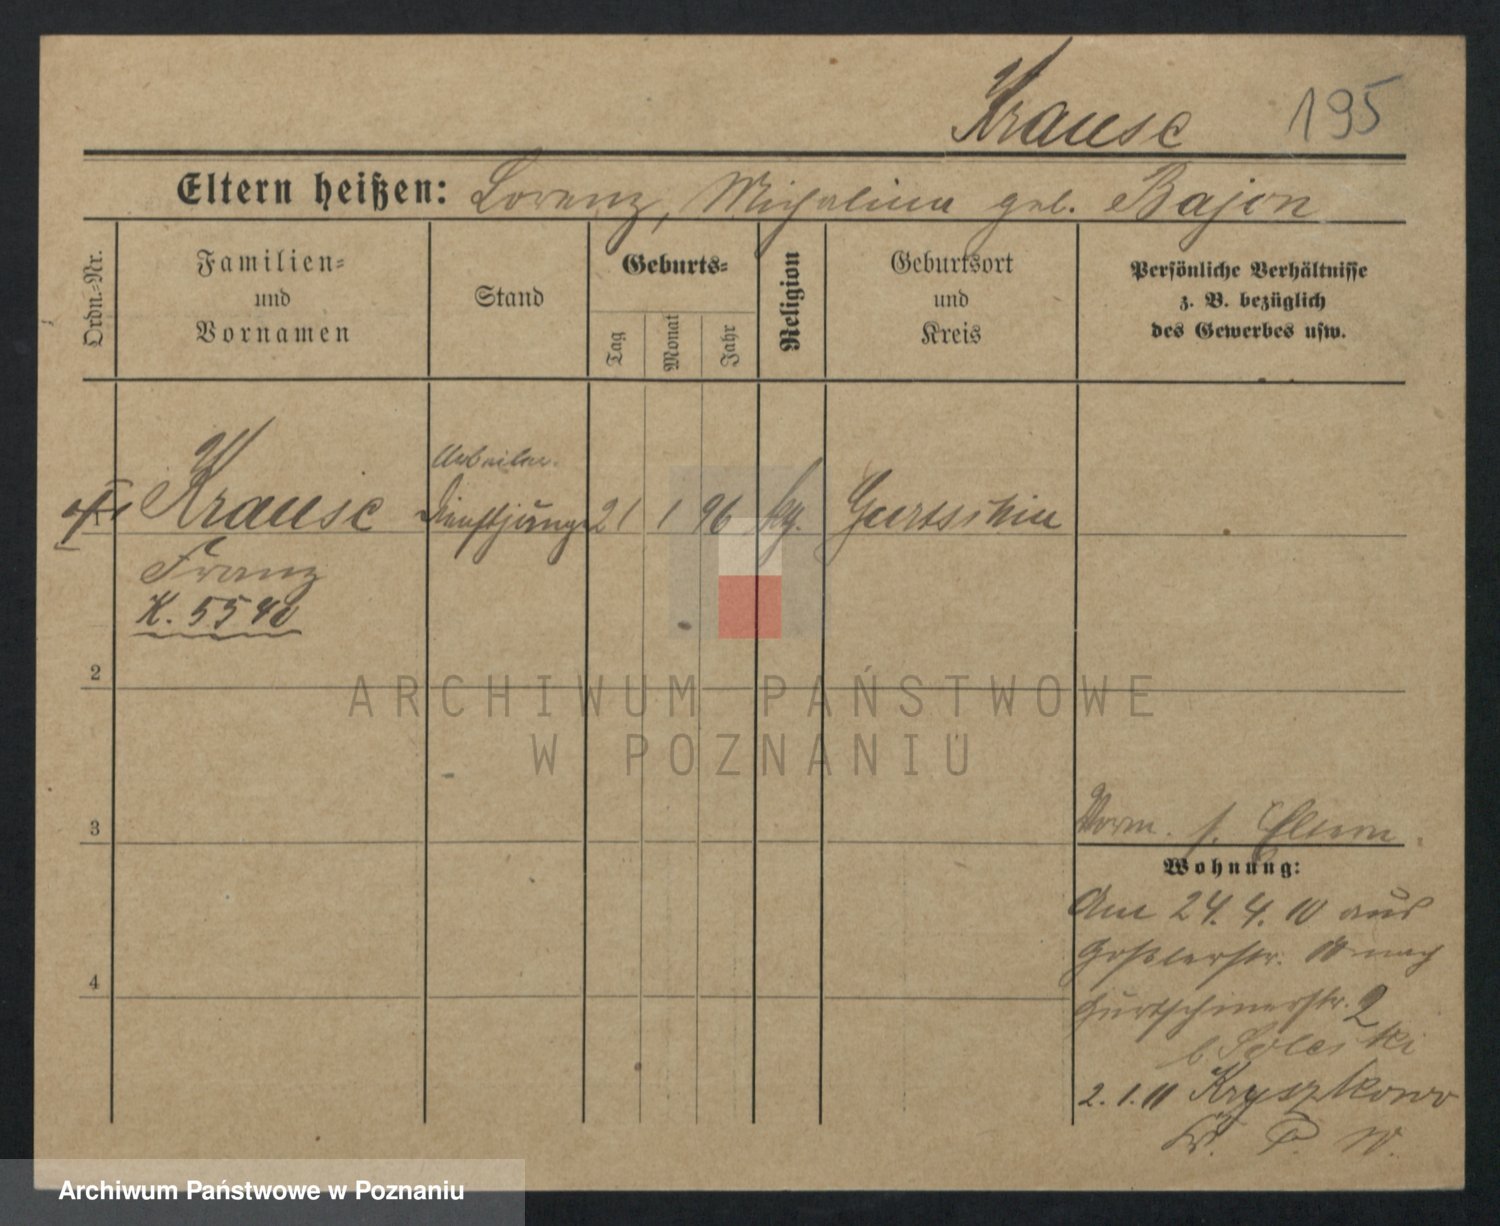 Krause 195
Eltern heißen: Lorenz, Michalina geb. Bajon
Ordn.-Nr.
Familien-
und
Vornamen
Stand
Geburts-
Tag
Monat
Jahr
Religion
Geburtsort
und
Kreis
Persönliche Verhältnisse
z. B. bezüglich
des Gewerbes usw.
Arbeiter.
Krause Dienstjunge 21 1 96 kg. Gurtschin
Franz
K. 5540
2
ARCHIWUM PAŃSTWOWE
W POZNANIU
3
Vorm. s. Eltern.
Wohnung:
Am 24. 4. 10 aus
Goßlerstr. 10 nach
4
Gurtschinerstr. 2
b. Soleski
2. 1. 11 Kryszkowo
Kr. P. W.
Archiwum Państwowe w Poznaniu